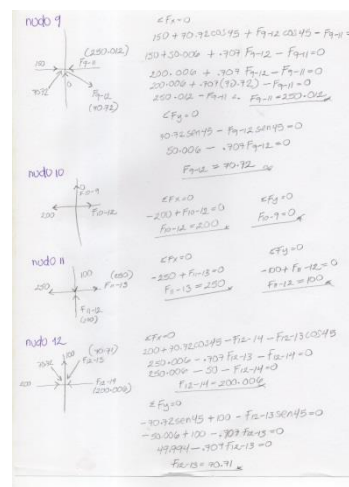 nudo 9
ΣFx=0
150 + 70.72cos45 + F9-12 cos45 - F9-11=0
150+50.006 + .707 F9-12 - F9-11=0
200.006 + .707 F9-12 - F9-11=0
200.006 + .707(70.72) - F9-11=0
250.012 - F9-11 F9-11=250.012
ΣFy=0
70.72sen45 - F9-12sen45=0
50.006 - .707F9-12=0
F9-12=70.72
150
(250.012)
F9-11
70.72
0
F9-12
(70.72)
nudo 10
0
F10-9
200
F10-12
ΣFx=0
-200 + F10-12=0
F10-12=200
ΣFy=0
F10-9=0
nudo 11
100
250
F11-13
F11-12
(100)
ΣFx=0
-250 + F11-13=0
F11-13=250
ΣFy=0
-100+F11-12=0
F11-12=100
nudo 12
100
(70.71)
F12-13
70.72
200
F12-14
(200.006)
ΣFx=0
200+70.72cos45 - F12-14 - F12-13cos45
250.006 - .707F12-13 - F12-14=0
250.006 - 50 - F12-14=0
F12-14=200.006
ΣFy=0
-70.72sen45 + 100 - F12-13sen45=0
-50.006 + 100 - .707F12-13=0
49.994 - .707F12-13=0
F12-13=70.71